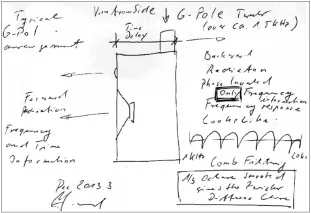 Typical
G-Pol
arrangement
View from Side
Time
Delay
G-Pole Tweeter
(over ca. 1.5 kHz)
Backward
Radiation
Phase Inverted
Only Frequency
information
Frequency response
Looks like:
Forward
Radiation
Frequency
and Time
Information
1 kHz
Comb Filtering
1/3 Octave Smoothed
gives the Periodic
Dec 2013